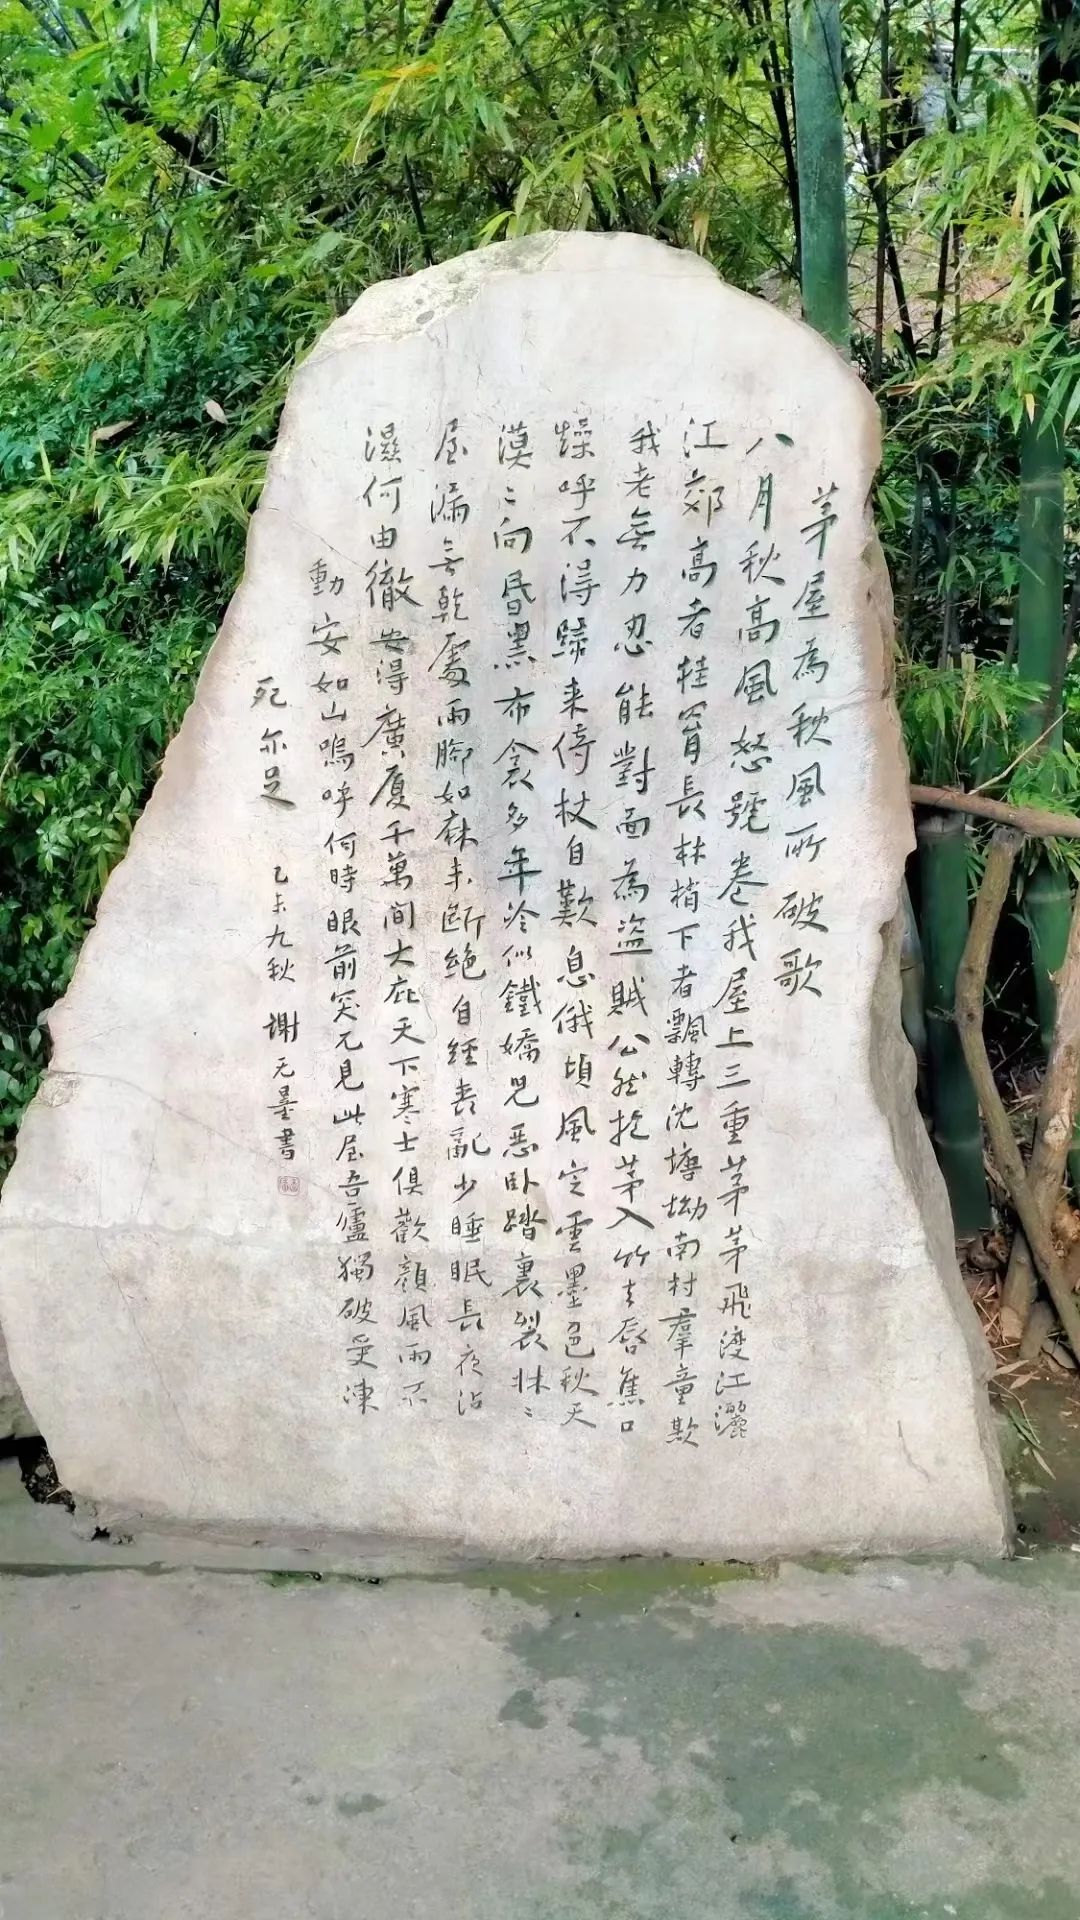 茅屋為秋風所破歌
八月秋高風怒號卷我屋上三重茅茅飛渡江灑
江郊高者挂罥長林梢下者飄轉沈塘坳南村羣童欺
我老無力忍能對面為盜賊公然抱茅入竹去唇焦口
燥呼不得歸来倚杖自歎息俄頃風定雲墨色秋天
漠〻向昏黑布衾多年冷似鐵嬌兒惡卧踏裏裂牀〻
屋漏無乾處雨腳如麻未斷絶自經喪亂少睡眠長夜沾
濕何由徹安得廣厦千萬間大庇天下寒士俱歡顏風雨不
動安如山嗚呼何時眼前突兀見此屋吾廬獨破受凍
死亦足 乙未九秋 謝无量書